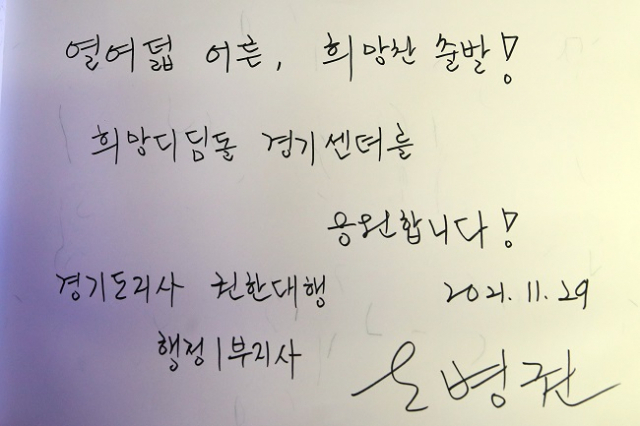 열여덟 어른, 희망찬 출발!
희망디딤돌 경기센터를
응원합니다!
경기도지사 권한대행 2021.11.29
행정1부지사 오병권